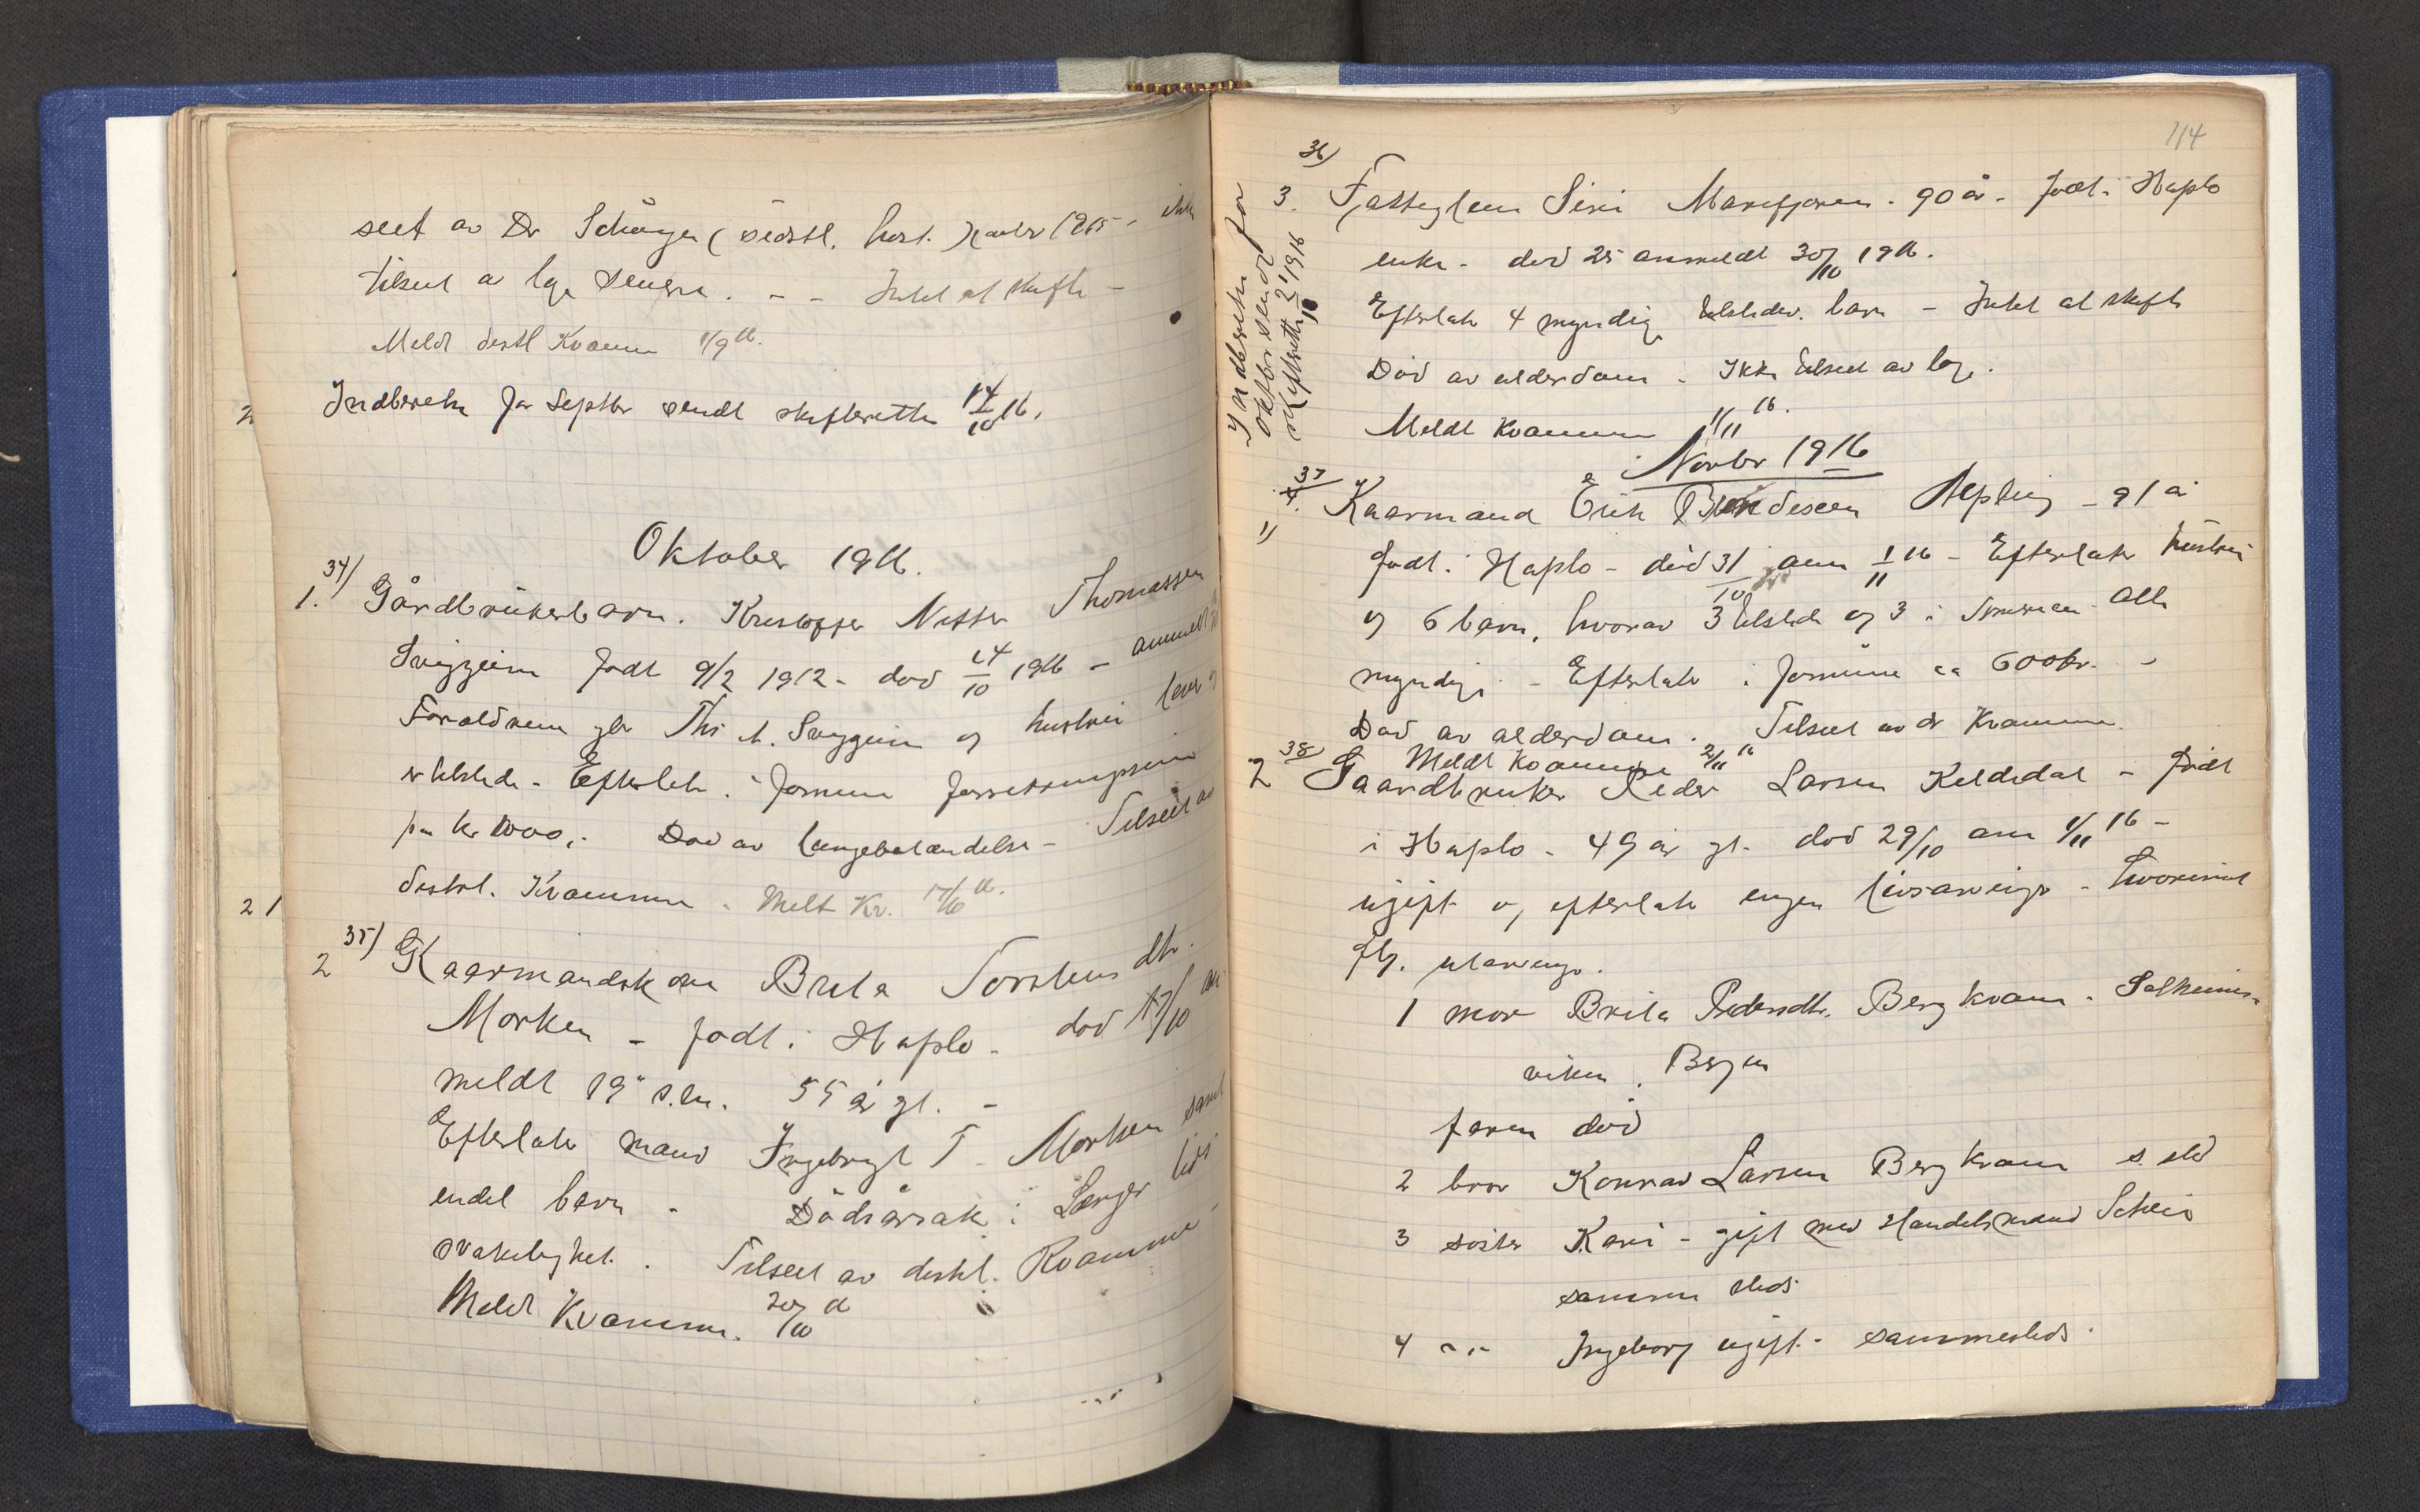 seet av Dr Schönyen (sidstl. høst.) Novbr 1915 - ikke
tilseet av læge senere. - - Intet at skifte -
Meldt distl Kvamme 1/9 16.
Indberetn for Septbr sendt skifteretten 14/10 16.
Oktober 1916.
34)
1. Gårdbrukerbarn. Kristoffer Nitter Thomassen
født 9/2 1912 - død 14/10 1916 - anmeldt
Forældrene gbr Ths. A. og hustru lever og
er tilstede - Efterlater i formue
paa kr 1000,- Død av lungebetændelse - Tilseet av
distrl. Kvamme. Meldt Kv. 17/10 16.
35)
2 Kaarmandskone Brita Torsteinsdtr.
Morken - født i Hafslo - død 17/10 an
meldt 19 s.m. 55 år gl. -
Efterlater mand Ingebrigt T. Morken samt
endel barn - Dødsårsak: Længer tids
svakelighet. Tilseet av distrl. Kvamme -
Meldt Kvamme. 20/10 16
114
Indberetn for
oktober sendt
skifteretten 2/11 1916
36)
3. Fattiglem Siri Marifjøren - 90 år - født i Hafslo
enke - død 25 anmeldt 30/10 1916.
Efterlater 4 myndige tilstedev. barn - Intet at skifte
Død av alderdom - Ikke tilseet av læge.
Meldt Kvamme 1/11 16.
Novbr 1916
37
1) Kaarmand Erik - 91 år
født i Hafslo - død 31/10 anm 1/11 16 - Efterlater hustru
og 6 barn, hvorav 3 tilstede og 3 i Amerika alle
myndige - Efterlater i formue ca 600 kr. -
Død av alderdom. Tilseet av dr Kvamme
Meldt Kvamme 2/11 16
38)
2 Gaardbruker Peder Larsen Kildedal - født
i Hafslo - 49 år gl. død 29/10 anm 1/11 16 -
ugift og efterlater ingen livsarvinger - hvorimot
flg. utarvinger.
1 mor Brita Pedersdtr. Bergkvam - Solheims-
viken, Bergen
faren død
2 bror Konrad Larsen Bergkvam s. sted
3 søster Kari - gift med Handelsmand Scheie
samme sted
4 -"- Ingeborg ugift - sammesteds.